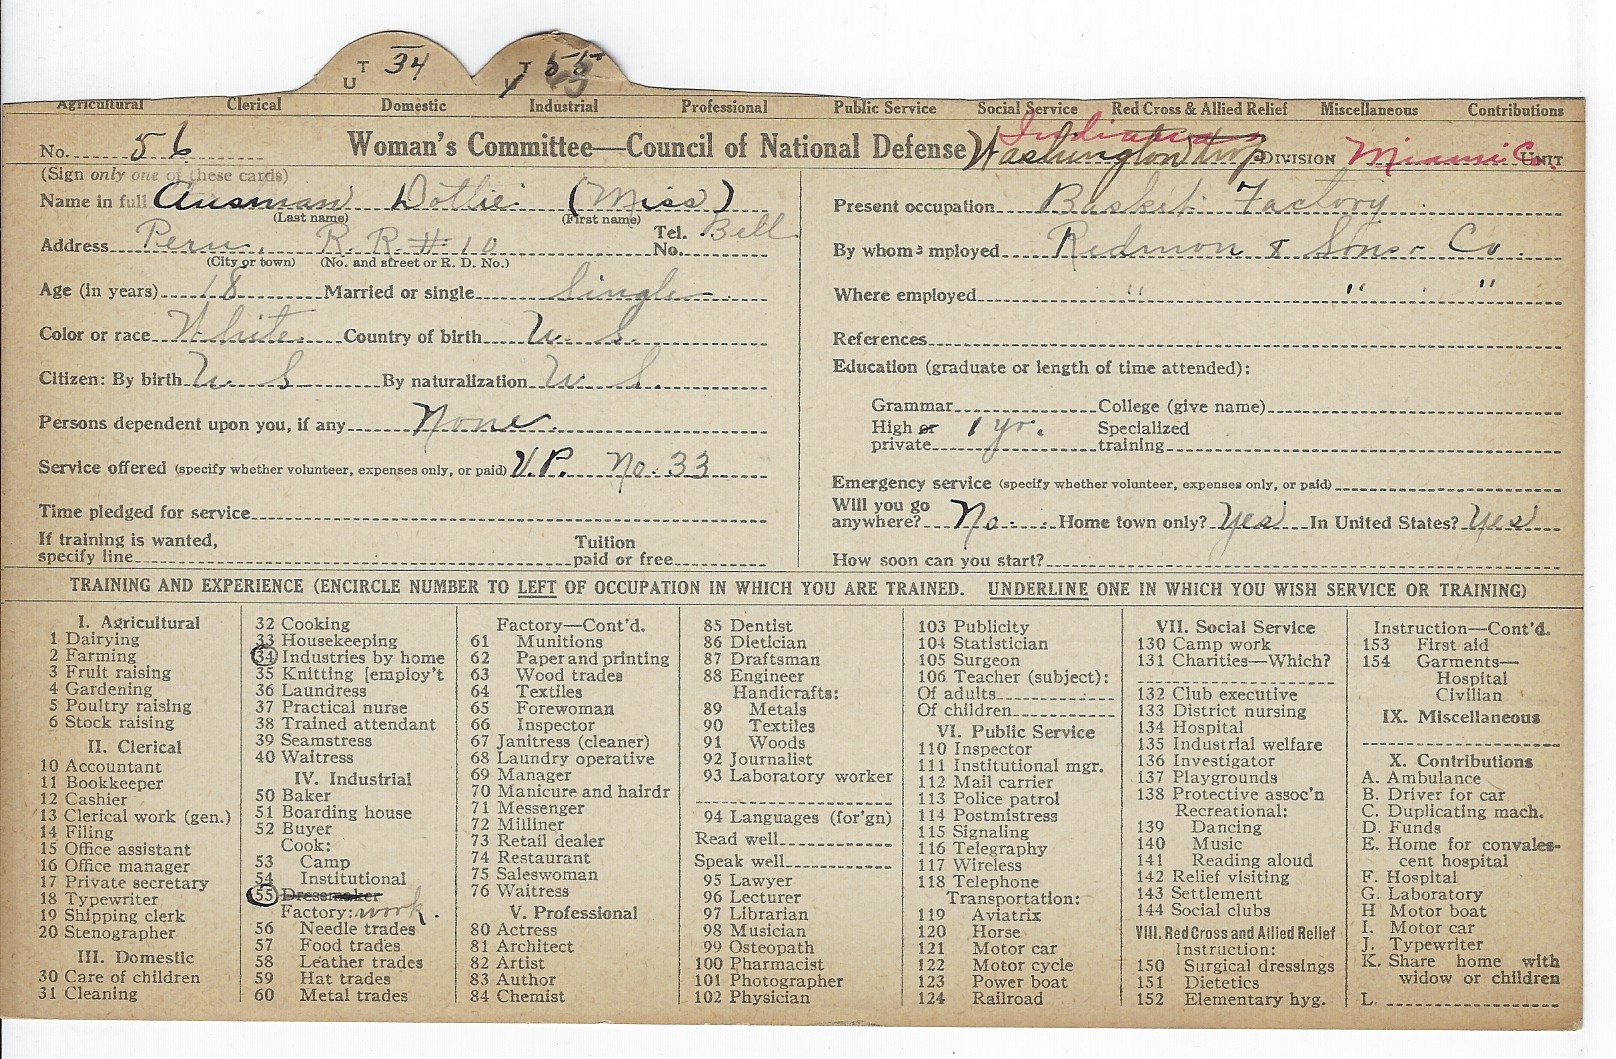 U T 34 T 55
Agricultural Clerical Domestic Industrial Professional Public Service Social Service Red Cross & Allied Relief Miscellaneous Contributions
No. 56 Woman's Committee—Council of National Defense Indiana Washington Twp DIVISION Miami Co. UNIT
(Sign only one of these cards)
Name in full Ausman Dottie (Miss)
(Last name) (First name)
Address Peru, R. R. # 10 Tel. No. Bell
(City or town) (No. and street or R. D. No.)
Age (in years) 18 Married or single Single
Color or race White Country of birth U. S.
Citizen: By birth U S By naturalization U S.
Persons dependent upon you, if any None.
Service offered (specify whether volunteer, expenses only, or paid) V.P. No. 33
Time pledged for service
If training is wanted,
specify line Tuition paid or free
Present occupation Basket Factory
By whom employed Redmon & Sons Co.
Where employed " " "
References
Education (graduate or length of time attended):
Grammar College (give name)
High or private 1 yr. Specialized training
Emergency service (specify whether volunteer, expenses only, or paid)
Will you go anywhere? No. Home town only? Yes In United States? Yes
How soon can you start?
TRAINING AND EXPERIENCE (ENCIRCLE NUMBER TO LEFT OF OCCUPATION IN WHICH YOU ARE TRAINED. UNDERLINE ONE IN WHICH YOU WISH SERVICE OR TRAINING)
I. Agricultural
1 Dairying
2 Farming
3 Fruit raising
4 Gardening
5 Poultry raising
6 Stock raising
II. Clerical
10 Accountant
11 Bookkeeper
12 Cashier
13 Clerical work (gen.)
14 Filing
15 Office assistant
16 Office manager
17 Private secretary
18 Typewriter
19 Shipping clerk
20 Stenographer
III. Domestic
30 Care of children
31 Cleaning
32 Cooking
33 Housekeeping
34 Industries by home
35 Knitting [employ't
36 Laundress
37 Practical nurse
38 Trained attendant
39 Seamstress
40 Waitress
IV. Industrial
50 Baker
51 Boarding house
52 Buyer
Cook:
53 Camp
54 Institutional
55 Dressmaker
Factory: work.
56 Needle trades
57 Food trades
58 Leather trades
59 Hat trades
60 Metal trades
Factory—Cont'd.
61 Munitions
62 Paper and printing
63 Wood trades
64 Textiles
65 Forewoman
66 Inspector
67 Janitress (cleaner)
68 Laundry operative
69 Manager
70 Manicure and hairdr
71 Messenger
72 Milliner
73 Retail dealer
74 Restaurant
75 Saleswoman
76 Waitress
V. Professional
80 Actress
81 Architect
82 Artist
83 Author
84 Chemist
85 Dentist
86 Dietician
87 Draftsman
88 Engineer
Handicrafts:
89 Metals
90 Textiles
91 Woods
92 Journalist
93 Laboratory worker
94 Languages (for'gn)
Read well
Speak well
95 Lawyer
96 Lecturer
97 Librarian
98 Musician
99 Osteopath
100 Pharmacist
101 Photographer
102 Physician
103 Publicity
104 Statistician
105 Surgeon
106 Teacher (subject):
Of adults
Of children
VI. Public Service
110 Inspector
111 Institutional mgr.
112 Mail carrier
113 Police patrol
114 Postmistress
115 Signaling
116 Telegraphy
117 Wireless
118 Telephone
Transportation:
119 Aviatrix
120 Horse
121 Motor car
122 Motor cycle
123 Power boat
124 Railroad
VII. Social Service
130 Camp work
131 Charities—Which?
132 Club executive
133 District nursing
134 Hospital
135 Industrial welfare
136 Investigator
137 Playgrounds
138 Protective assoc'n
Recreational:
139 Dancing
140 Music
141 Reading aloud
142 Relief visiting
143 Settlement
144 Social clubs
VIII. Red Cross and Allied Relief
Instruction:
150 Surgical dressings
151 Dietetics
152 Elementary hyg.
Instruction—Cont'd.
153 First aid
154 Garments—
Hospital
Civilian
IX. Miscellaneous
X. Contributions
A. Ambulance
B. Driver for car
C. Duplicating mach.
D. Funds
E. Home for convales-
cent hospital
F. Hospital
G. Laboratory
H Motor boat
I. Motor car
J. Typewriter
K. Share home with
widow or children
L.